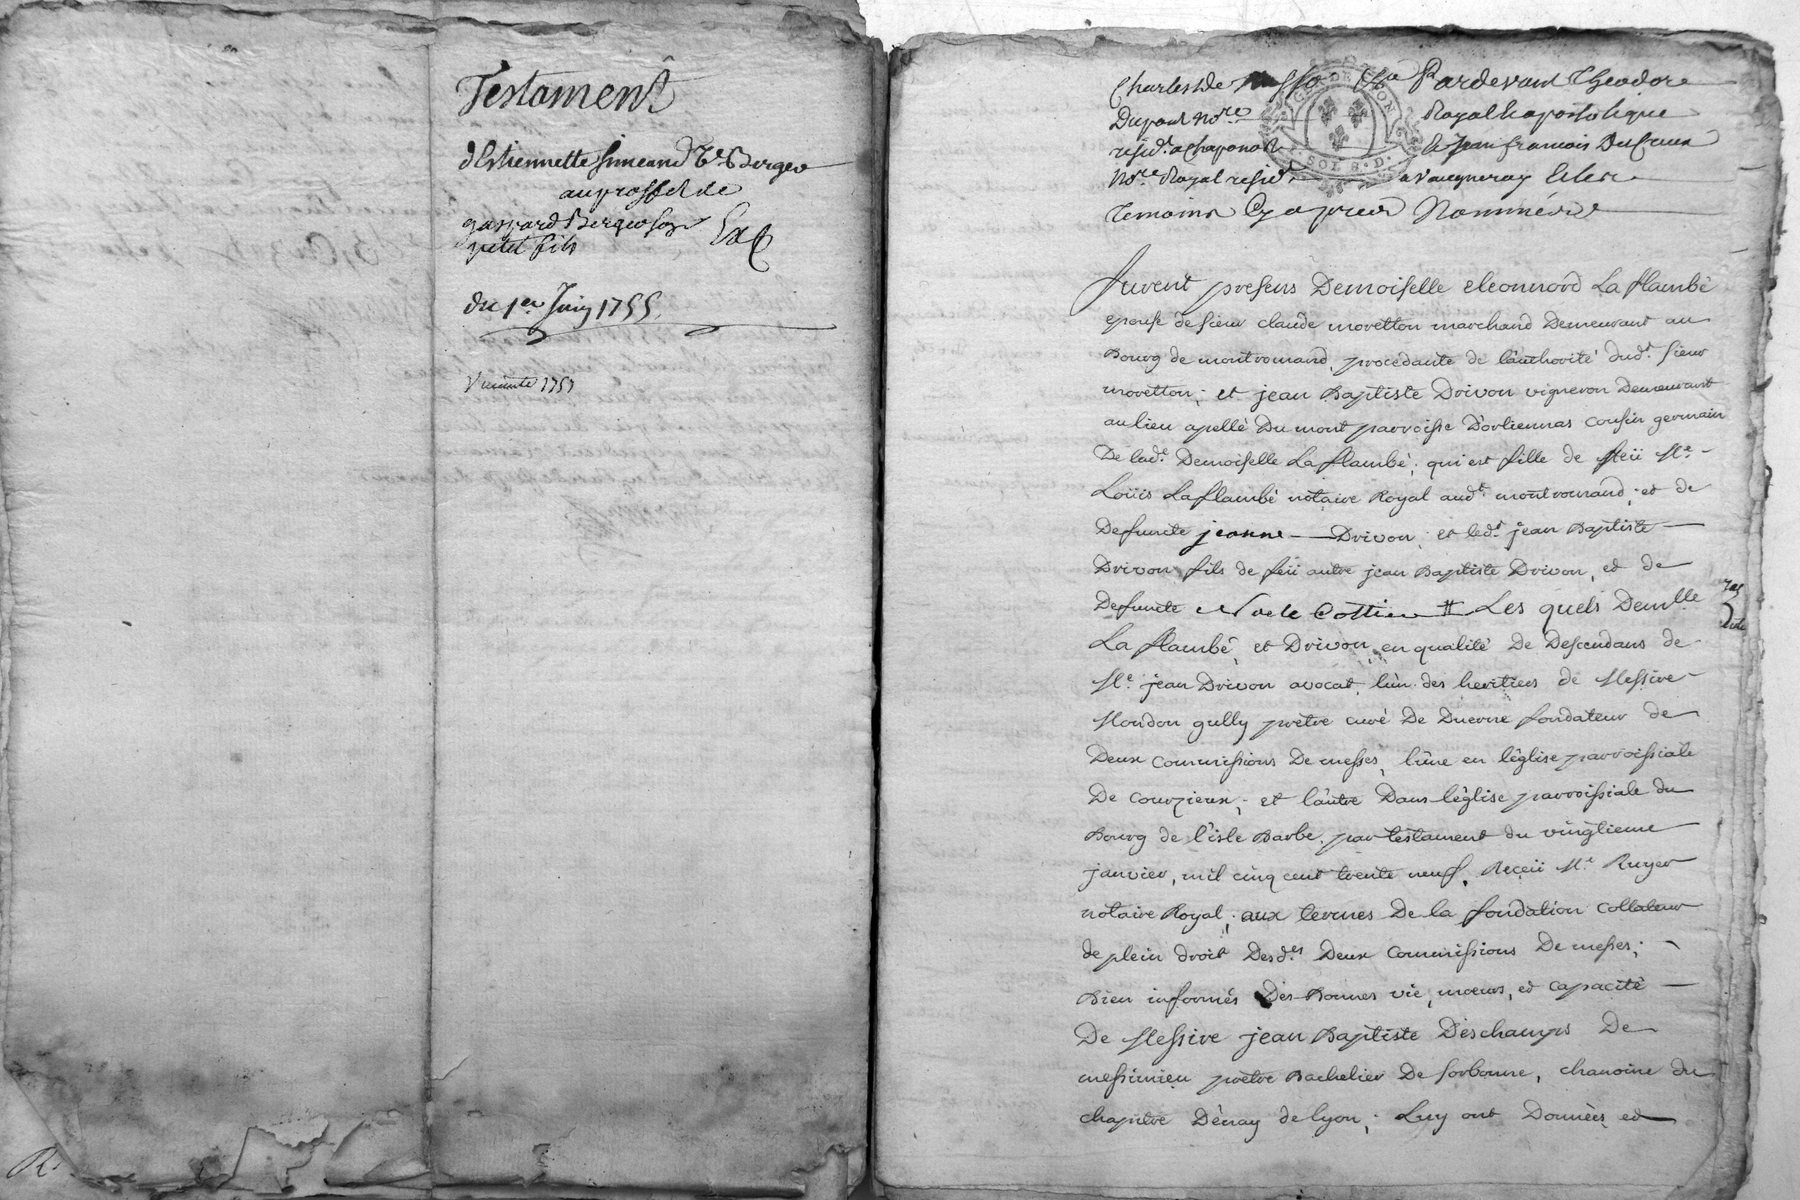 Testament
d'Estiennette Simeand Ve Berger
au proffit de
gaspard Berger son
petit fils
du 1er Juin 1755
1757
R.
Charles de Pardevant Theodore
Dupont nore Royal & apostolique
resid. a Chaponost & Jean francois Dufreux
Nore Royal resid. a Vaugneray
Temoins Cy apres Nommés
GEN. DE LYON
SOLS. D.
furent presens Demoiselle eleonnord La flambé
epouse de sieur claude moretton marchand Demeurant au
Bourg de montromand, procédante de l'authorité dud.t sieur
moretton; et jean Baptiste Drivon vigneron Demeurant
au lieu apellé Du mont parroisse D'orliennas cousin germain
De lad.e Demoiselle La flambé; qui est fille de feü Me
Loüis Laflambé notaire Royal aud.t montromand; et de
Defuncte jeanne Drivon; et led.t jean Baptiste
Drivon fils de feü autre jean Baptiste Drivon, et de
Defuncte Noele Cottier Les quels Demlle
La flambé, et Drivon, en qualité De Descendans de
Me jean Drivon avocat, l'ün des heritiers de Messire
Mondon gully prêtre curé De Duerne fondateur de
Deux commissions De messes, l'üne en l'église parroissiale
De courzieux; et l'autre Dans l'église parroissiale du
Bourg de l'isle Barbe, par testament du vingtieme
janvier, mil cinq cent trente neuf, Reçeü Me Ruyer
notaire Royal; aux termes De la fondation collateur
de plein droit Desd.es Deux commissions De messes;
Bien informés Des Bonnes vie, mœurs, et capacité
De Messire jean Baptiste Deschamps De
messimieu prêtre Bachelier De sorbonne, chanoine du
chapitre D'énay de lyon; Luy ont Données et